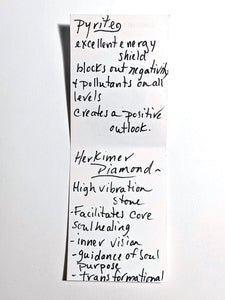 Pyrite
excellent energy
shield
blocks out negativity
& pollutants on all
levels
Creates a positive
outlook.
Herkimer
Diamond ~
High vibration
stone
- Facilitates core
soul healing
- inner vision
- guidance of soul
purpose
- transformational